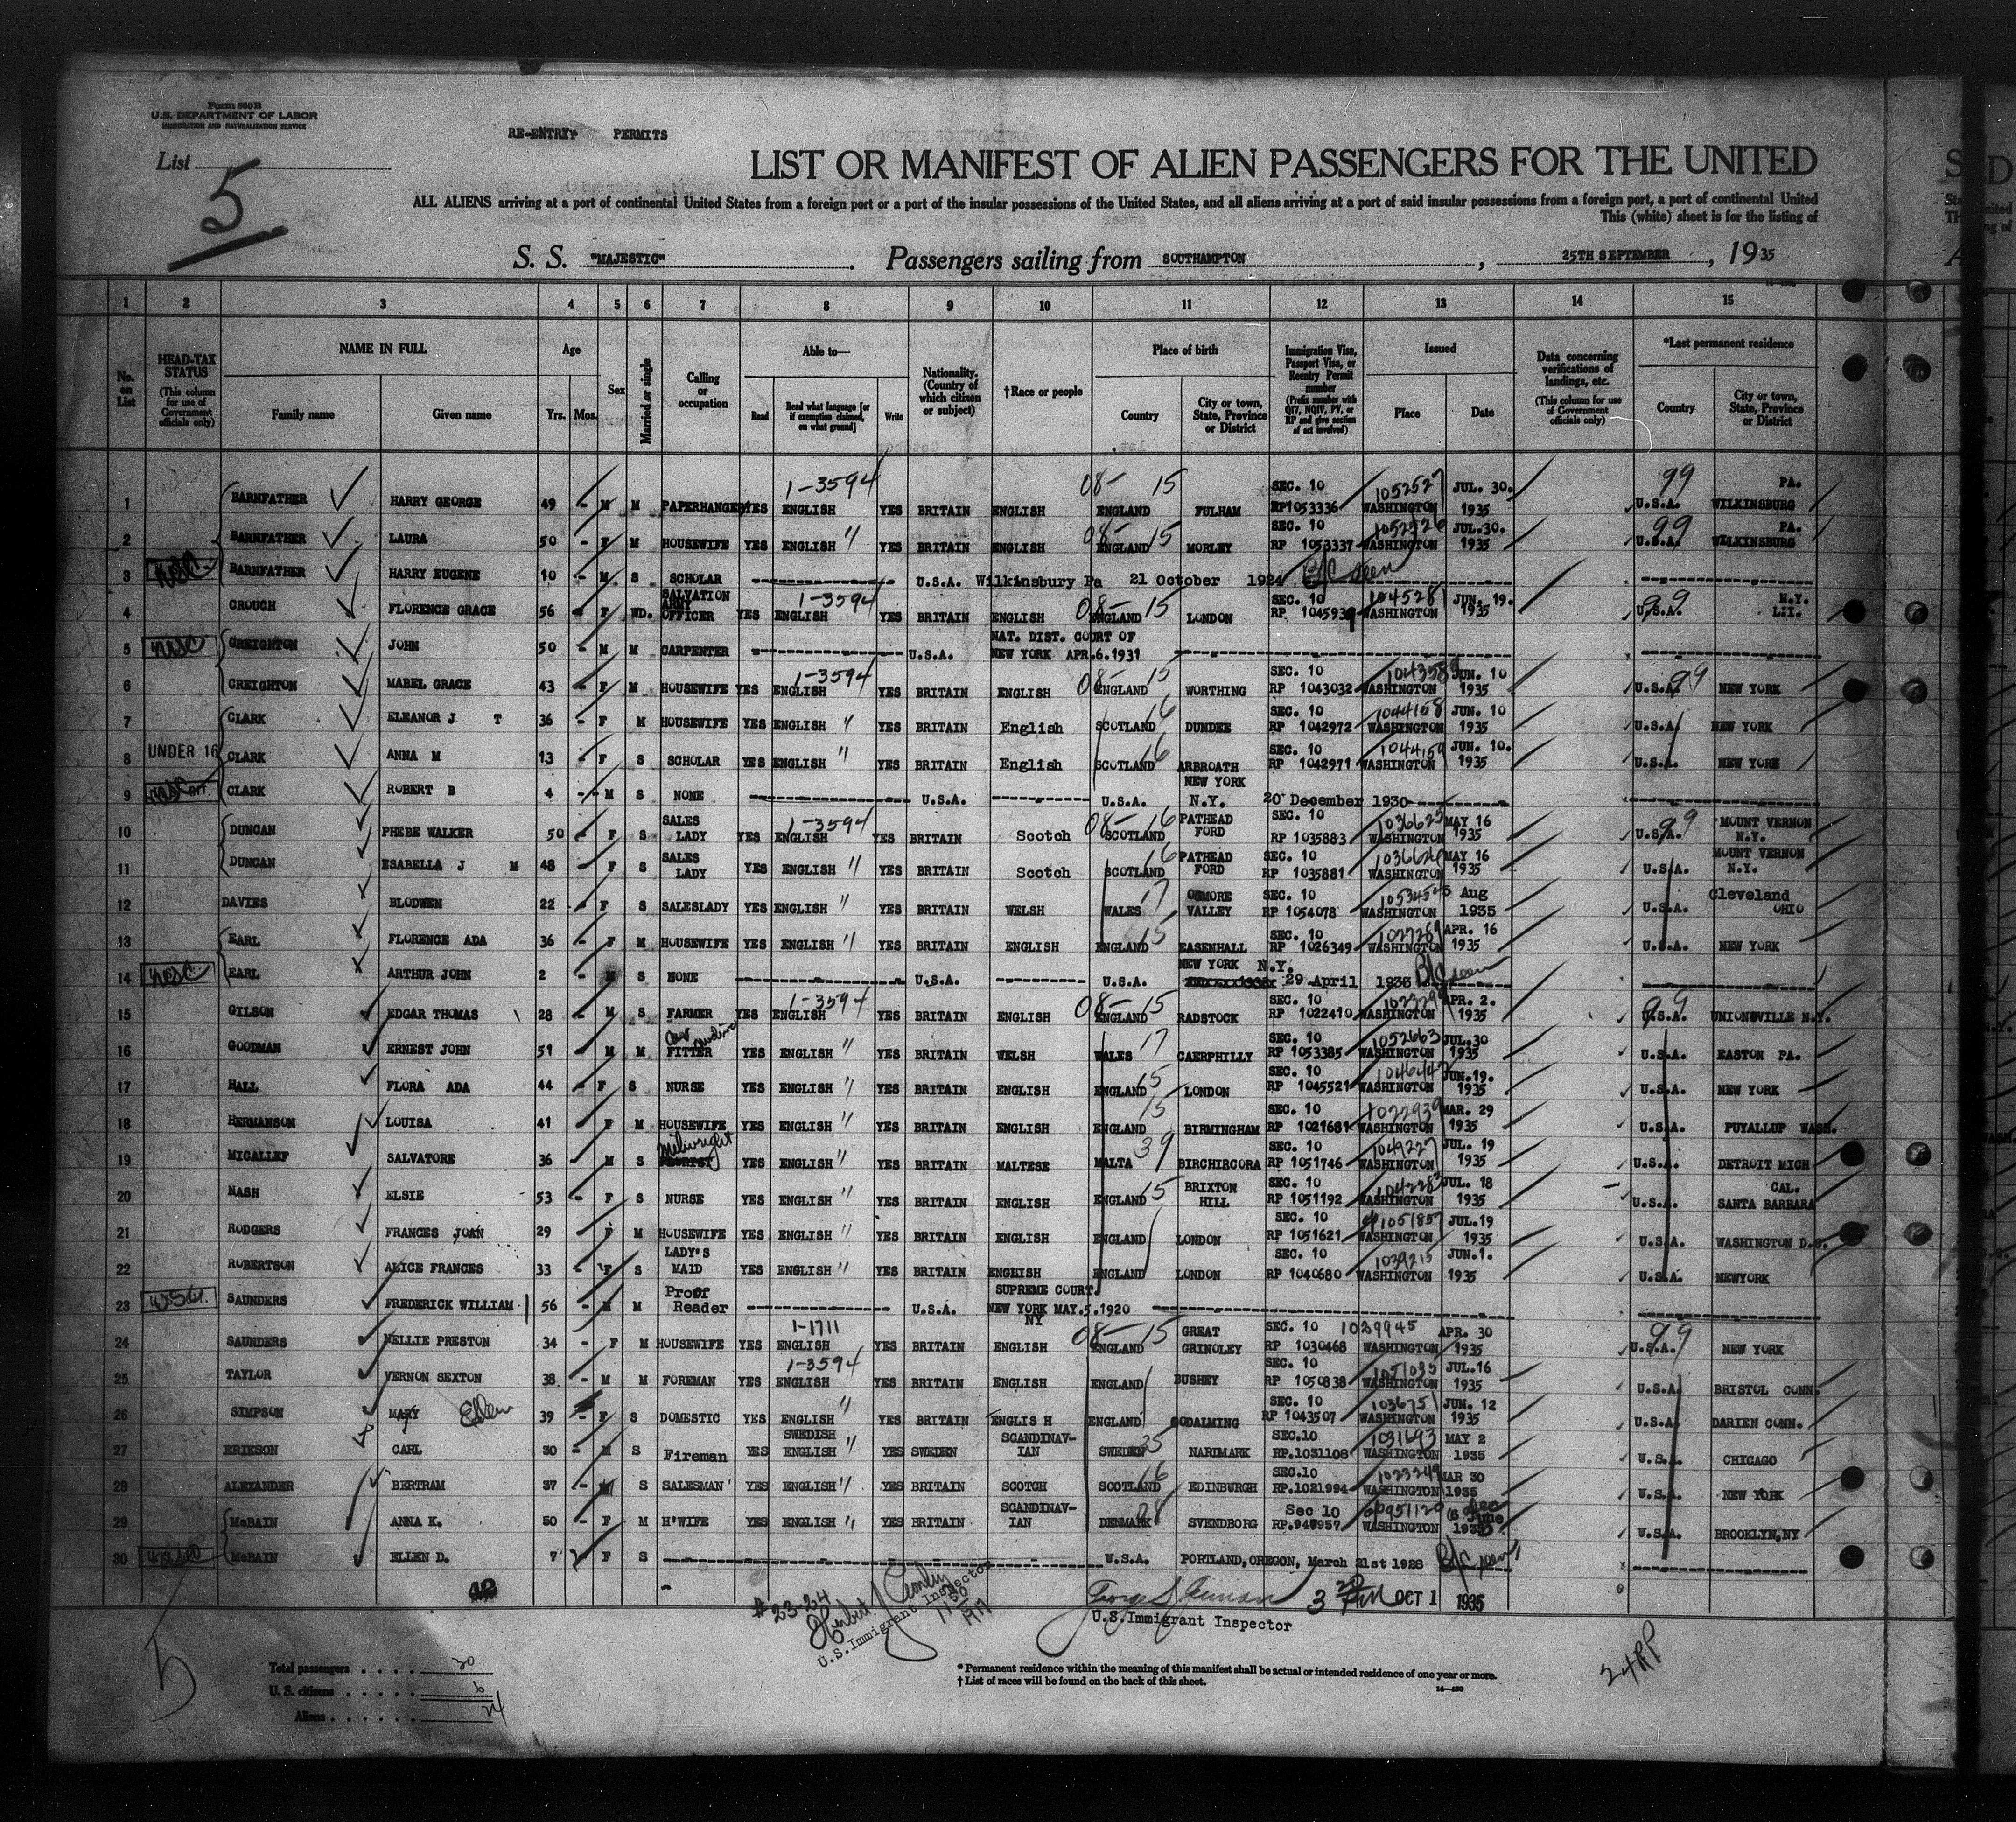 Form 500 B
U.S. DEPARTMENT OF LABOR
IMMIGRATION AND NATURALIZATION SERVICE
RE-ENTRY PERMITS
List
5
LIST OR MANIFEST OF ALIEN PASSENGERS FOR THE UNITED
ALL ALIENS arriving at a port of continental United States from a foreign port or a port of the insular possessions of the United States, and all aliens arriving at a port of said insular possessions from a foreign port, a port of continental United
This (white) sheet is for the listing of
S. S. "MAJESTIC" . Passengers sailing from SOUTHAMPTON , 25TH SEPTEMBER , 1935
1 2 3 4 5 6 7 8 9 10 11 12 13 14 15
No. on List
HEAD-TAX STATUS (This column for use of Government officials only)
NAME IN FULL Family name Given name
Age Yrs. Mos.
Sex
Married or single
Calling or occupation
Able to— Read Read what language [or if exemption claimed, on what ground] Write
Nationality. (Country of which citizen or subject)
†Race or people
Place of birth Country City or town, State, Province or District
Immigration Visa, Passport Visa, or Reentry Permit number (Prefix number with QIV, NQIV, PV, or RP and give section of act involved)
Issued Place Date
Data concerning verifications of landings, etc. (This column for use of Government officials only)
*Last permanent residence Country City or town, State, Province or District
1 BARNFATHER HARRY GEORGE 49 - M M PAPERHANGER YES ENGLISH 1-3594 YES BRITAIN ENGLISH 08- 15 ENGLAND FULHAM SEC. 10 RP1053336 1052527 WASHINGTON JUL. 30. 1935 99 U.S.A. PA. WILKINSBURG
2 BARNFATHER LAURA 50 - F M HOUSEWIFE YES ENGLISH " YES BRITAIN ENGLISH 08- 15 ENGLAND MORLEY SEC. 10 RP 1053337 1052526 WASHINGTON JUL.30. 1935 99 U.S.A. PA. WILKINSBURG
3 BARNFATHER HARRY EUGENE 10 - M S SCHOLAR U.S.A. Wilkinsbury Pa 21 October 1924 B/C seen
4 CROUCH FLORENCE GRACE 56 - F WD. SALVATION ARMY OFFICER YES ENGLISH 1-3594 YES BRITAIN ENGLISH 08- 15 ENGLAND LONDON SEC. 10 RP 1045939 1045281 WASHINGTON JUN. 19. 1935 99 U.S.A. N.Y. L.I.
5 CREIGHTON JOHN 50 - M M CARPENTER U.S.A. NAT. DIST. COURT OF NEW YORK APR.6.1931
6 CREIGHTON MABEL GRACE 43 - F M HOUSEWIFE YES ENGLISH 1-3594 YES BRITAIN ENGLISH 08- 15 ENGLAND WORTHING SEC. 10 RP 1043032 WASHINGTON JUN. 10 1935 99 U.S.A. NEW YORK
7 CLARK ELEANOR J T 36 - F M HOUSEWIFE YES ENGLISH " YES BRITAIN English SCOTLAND 16 DUNDEE SEC. 10 RP 1042972 1044158 WASHINGTON JUN. 10 1935 U.S.A. NEW YORK
8 UNDER 16 CLARK ANNA M 13 - F S SCHOLAR YES ENGLISH " YES BRITAIN English SCOTLAND 16 ARBROATH SEC. 10 RP 1042971 1044159 WASHINGTON JUN. 10. 1935 U.S.A. NEW YORK
9 CLARK ROBERT B 4 - M S NONE U.S.A. U.S.A. NEW YORK N.Y. 20 December 1930
10 DUNCAN PHEBE WALKER 50 - F S SALES LADY YES ENGLISH 1-3594 YES BRITAIN Scotch 08- 16 SCOTLAND PATHEAD FORD SEC. 10 RP 1035883 1036625 WASHINGTON MAY 16 1935 99 U.S.A. MOUNT VERNON N.Y.
11 DUNCAN ESABELLA J M 48 - F S SALES LADY YES ENGLISH " YES BRITAIN Scotch 16 SCOTLAND PATHEAD FORD SEC. 10 RP 1035881 1036626 WASHINGTON MAY 16 1935 U.S.A. MOUNT VERNON N.Y.
12 DAVIES BLODWEN 22 - F S SALESLADY YES ENGLISH " YES BRITAIN WELSH WALES 17 OGMORE VALLEY SEC. 10 RP 1054078 WASHINGTON Aug 1935 U.S.A. Cleveland OHIO
13 EARL FLORENCE ADA 36 - F M HOUSEWIFE YES ENGLISH " YES BRITAIN ENGLISH ENGLAND 15 EASENHALL SEC. 10 RP 1026349 1027289 WASHINGTON APR. 16 1935 U.S.A. NEW YORK
14 EARL ARTHUR JOHN 2 - M S NONE U.S.A. U.S.A. NEW YORK N.Y. 29 April 1933 B/C seen
15 GILSON EDGAR THOMAS 28 - M S FARMER YES ENGLISH 1-3594 YES BRITAIN ENGLISH 08- 15 ENGLAND RADSTOCK SEC. 10 RP 1022410 WASHINGTON APR. 2. 1935 99 U.S.A. UNIONSVILLE N.Y.
16 GOODMAN ERNEST JOHN 51 - M M FITTER YES ENGLISH " YES BRITAIN WELSH WALES 17 CAERPHILLY SEC. 10 RP 1053385 1052663 WASHINGTON JUL.30 1935 U.S.A. EASTON PA.
17 HALL FLORA ADA 44 - F S NURSE YES ENGLISH " YES BRITAIN ENGLISH ENGLAND 15 LONDON SEC. 10 RP 1045521 WASHINGTON JUN.19. 1935 U.S.A. NEW YORK
18 HERMANSON LOUISA 41 F M HOUSEWIFE YES ENGLISH " YES BRITAIN ENGLISH 15 ENGLAND BIRMINGHAM SEC. 10 RP 1021681 1022939 WASHINGTON MAR. 29 1935 U.S.A. PUYALLUP WASH.
19 MICALLEF SALVATORE 36 M S Millwright YES ENGLISH " YES BRITAIN MALTESE MALTA 39 BIRCHIRCORA SEC. 10 RP 1051746 1049227 WASHINGTON JUL. 19 1935 U.S.A. DETROIT MICH
20 NASH ELSIE 53 - F S NURSE YES ENGLISH " YES BRITAIN ENGLISH ENGLAND 15 BRIXTON HILL SEC. 10 RP 1051192 WASHINGTON JUL. 18 1935 U.S.A. CAL. SANTA BARBARA
21 RODGERS FRANCES JOAN 29 F M HOUSEWIFE YES ENGLISH " YES BRITAIN ENGLISH ENGLAND LONDON SEC. 10 RP 1051621 1051857 WASHINGTON JUL.19 1935 U.S.A. WASHINGTON D.C.
22 ROBERTSON ALICE FRANCES 33 - F S LADY'S MAID YES ENGLISH " YES BRITAIN ENGLISH ENGLAND LONDON SEC. 10 RP 1040680 1039215 WASHINGTON JUN.1. 1935 U.S.A. NEWYORK
23 SAUNDERS FREDERICK WILLIAM 56 - M M Proof Reader U.S.A. SUPREME COURT. NEW YORK MAY.5.1920 NY
24 SAUNDERS NELLIE PRESTON 34 - F M HOUSEWIFE YES ENGLISH 1-1711 YES BRITAIN ENGLISH 08- 15 ENGLAND GREAT GRINGLEY SEC. 10 RP 1030468 1029945 WASHINGTON APR. 30 1935 99 U.S.A. NEW YORK
25 TAYLOR VERNON SEXTON 38 - M M FOREMAN YES ENGLISH 1-3594 YES BRITAIN ENGLISH ENGLAND BUSHEY SEC. 10 RP 1050838 1051035 WASHINGTON JUL.16 1935 U.S.A. BRISTOL CONN.
26 SIMPSON MARY Ellen 39 - F S DOMESTIC YES ENGLISH " YES BRITAIN ENGLIS H ENGLAND GODALMING SEC. 10 RP 1043507 1036751 WASHINGTON JUN. 12 1935 U.S.A. DARIEN CONN.
27 ERIKSON CARL 30 - M S Fireman YES SWEDISH ENGLISH " YES SWEDEN SCANDINAV-IAN SWEDEN 35 NARDMARK SEC.10 RP.1031108 1031693 WASHINGTON MAY 2 1935 U.S.A. CHICAGO
28 ALEXANDER BERTRAM 37 - M S SALESMAN YES ENGLISH " YES BRITAIN SCOTCH SCOTLAND 16 EDINBURGH SEC.10 RP.1021994 1023249 WASHINGTON MAR 30 1935 U.S.A. NEW YORK
29 McBAIN ANNA K. 50 - F M H'WIFE YES ENGLISH " YES BRITAIN SCANDINAV-IAN DENMARK 28 SVENDBORG Sec 10 WASHINGTON U.S.A. BROOKLYN,NY
30 McBAIN ELLEN D. 7 F S U.S.A. PORTLAND,OREGON, March 21st 1928 B/C seen
42
#23-24
U.S. Immigrant Inspector
U.S. Immigrant Inspector
3 PM OCT 1 1935
5
24RP
Total passengers . . . . 30
U.S. citizens . . . . . . 6
Aliens . . . . . . 24
* Permanent residence within the meaning of this manifest shall be actual or intended residence of one year or more.
† List of races will be found on the back of this sheet.
14—430